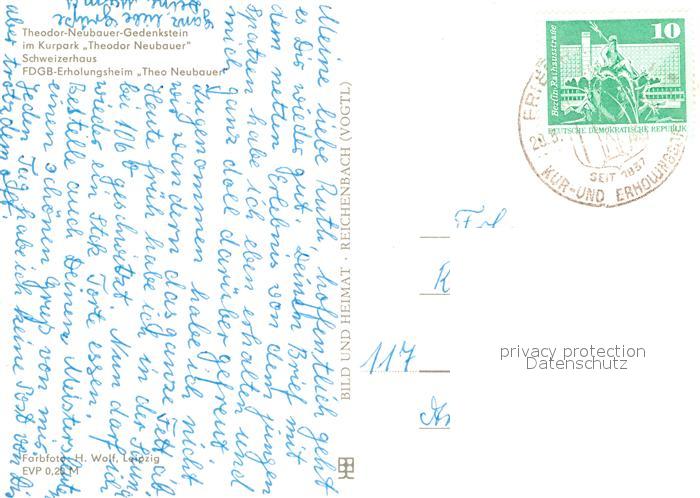 Theodor-Neubauer-Gedenkstein
im Kurpark „Theodor Neubauer"
Schweizerhaus
FDGB-Erholungsheim „Theo Neubauer"
Meine liebe Ruth, hoffentlich geht
es Dir wieder gut. Deinen Brief mit
dem netten Erlebnis von dem jungen
Spatzen habe ich eben erhalten und
mich ganz doll darüber gefreut
zugenommen habe ich nicht
wir wandern das ganze Fett ab,
Heute früh habe ich in der
bei 106° geschwitzt. Nun darf ich
wieder ein Stck Torte essen.
Bestelle auch Deinem
einen schönen Gruß von mir
Jeden Tag habe ich keine Post von Dir
aber trotzdem oft.
ganz liebe Grüße
Deine
Farbfoto: H. Wolf, Leipzig
EVP 0,25 M
BILD UND HEIMAT · REICHENBACH (VOGTL)
10
Berlin, Rathausstraße
DEUTSCHE DEMOKRATISCHE REPUBLIK
SEIT 1837
KUR- UND ERHOLUNGS
117
privacy protection
Datenschutz